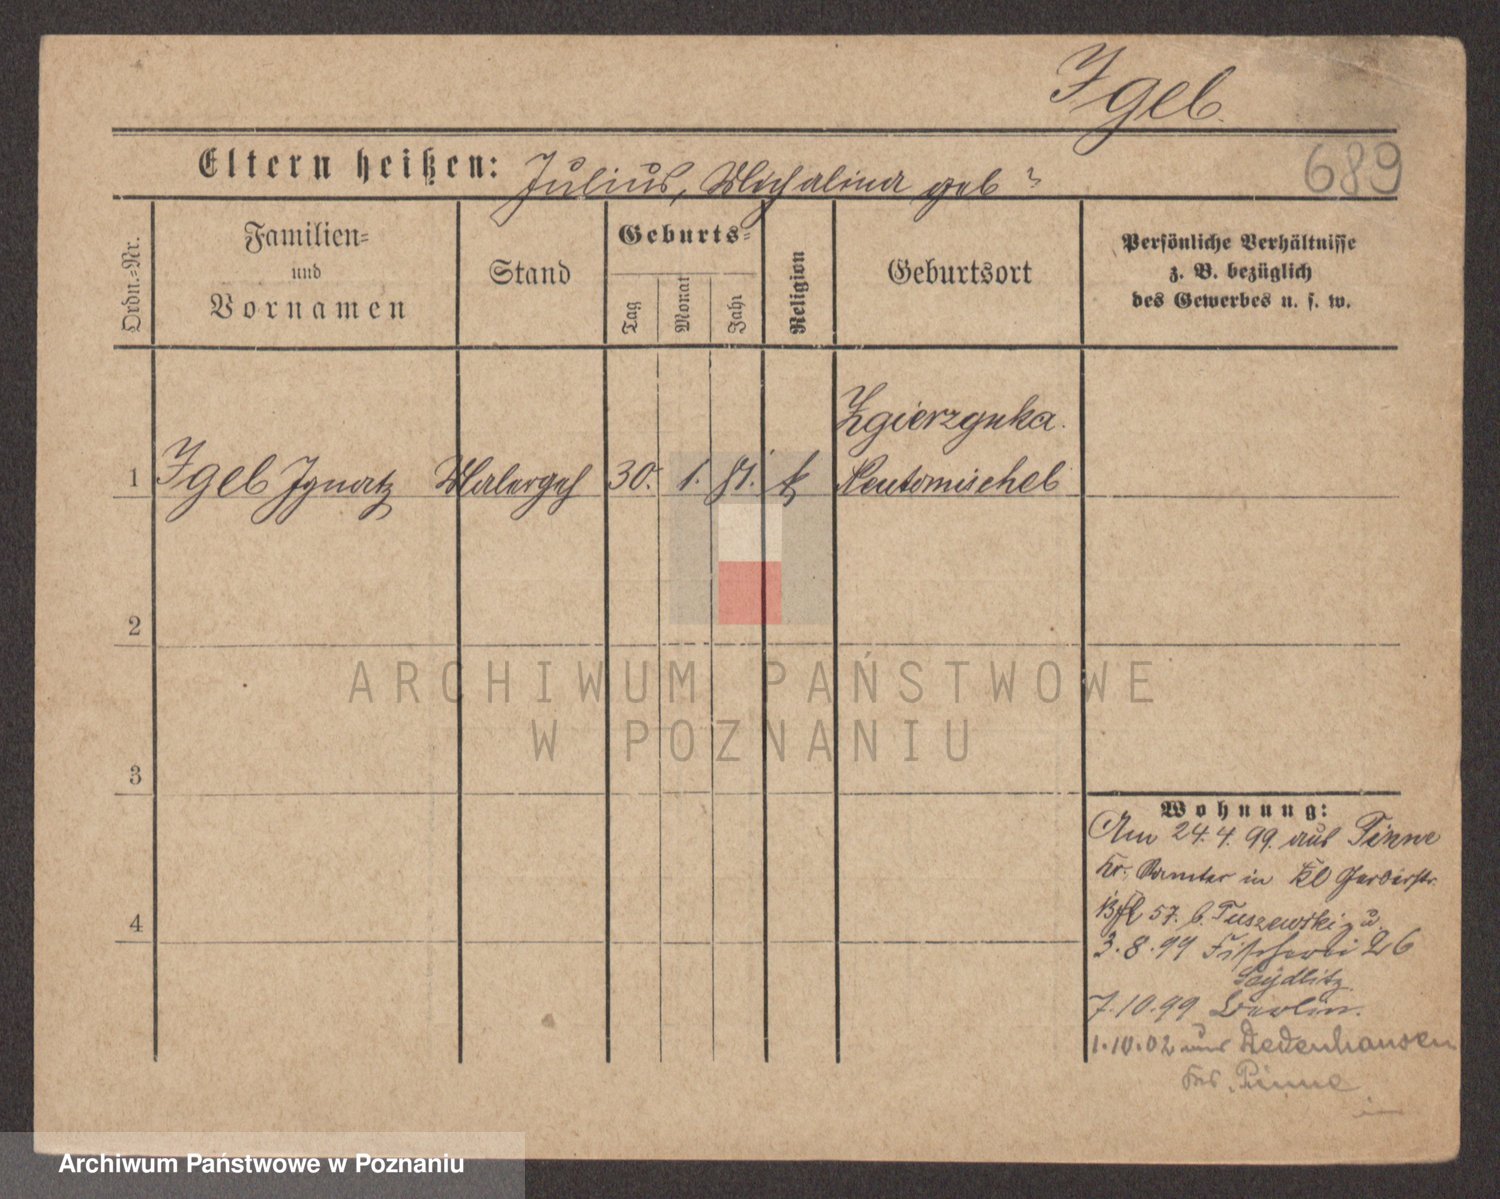 Igel
689
Eltern heißen: Julius, Michalina geb ?
Ordn.-Nr.
Familien-
und
Vornamen
Stand
Geburts-
Tag
Monat
Jahr
Religion
Geburtsort
Persönliche Verhältnisse
z. B. bezüglich
des Gewerbes u. s. w.
Zgierzynka
1 Igel Ignatz Malergeh 30. 1. 81. k Neutomischel
2
3
4
Wohnung:
Am 24.4.99. aus Pinne
Kr. Samter in Kl Gerberstr.
57. b. Tuszewski
3.8.99 Fischerei 26
Seydlitz
7.10.99 Berlin.
1.10.02 aus
Pinne
in
ARCHIWUM PAŃSTWOWE
W POZNANIU
Archiwum Państwowe w Poznaniu